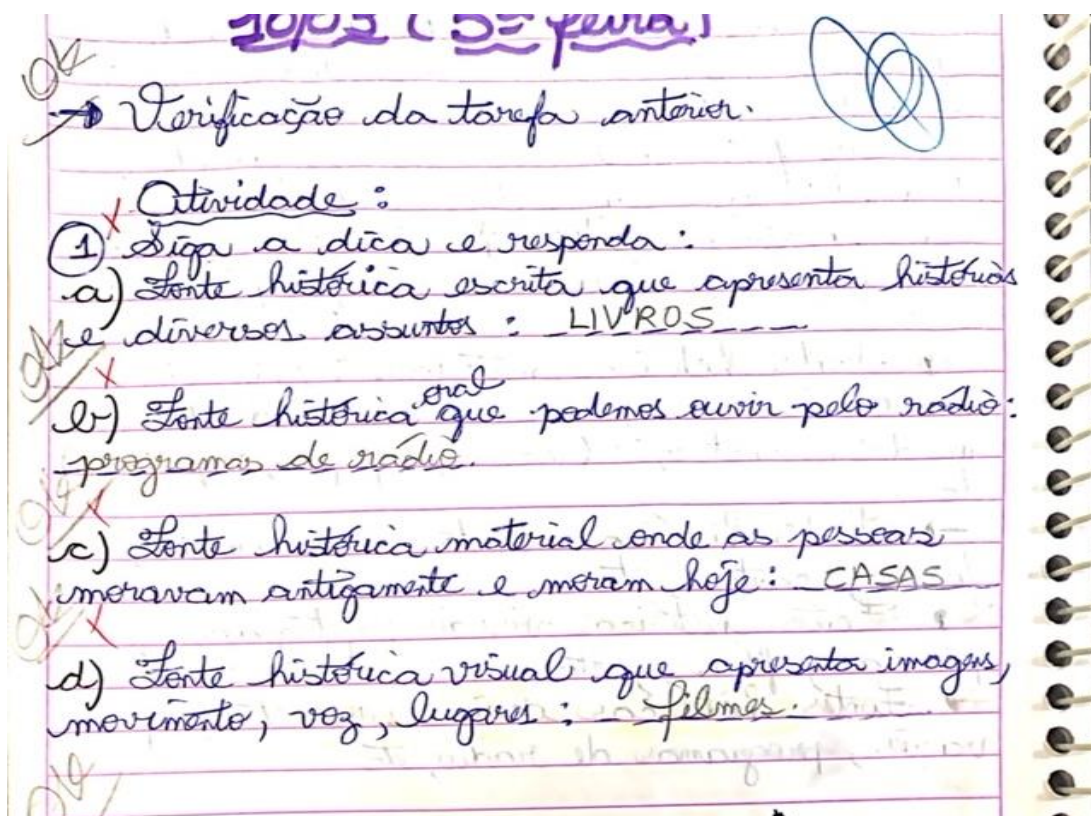 10/03 (3ª feira)
OK
→ Verificação da tarefa anterior.
Atividade:
1 Siga a dica e responda:
a) Fonte histórica escrita que apresenta histórias
e diversos assuntos: LIVROS
OK
b) Fonte histórica oral que podemos ouvir pelo rádio:
programas de rádio.
OK
c) Fonte histórica material onde as pessoas
moravam antigamente e moram hoje: CASAS
OK
d) Fonte histórica visual que apresenta imagens,
movimento, voz, lugares: filmes.
OK